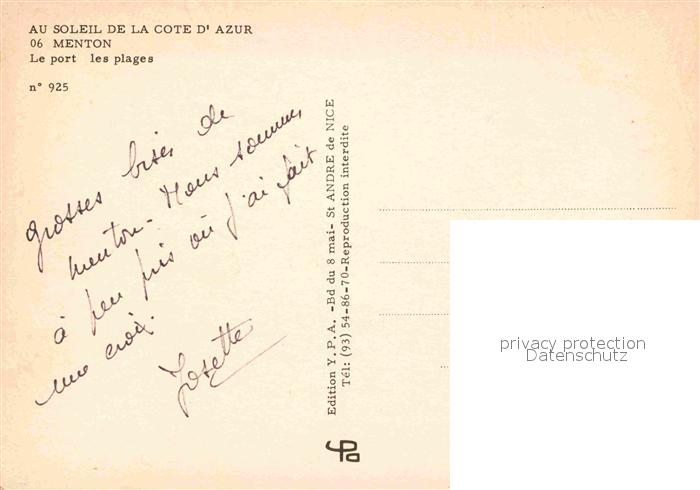 AU SOLEIL DE LA COTE D' AZUR
06 MENTON
Le port les plages
n° 925
grosses bises de
menton. Nous sommes
à peu près où j'ai fait
une croix.
Josette
Edition Y. P. A. -Bd du 8 mai- St ANDRE de NICE
Tél: (93) 54-86-70-Reproduction interdite
privacy protection
Datenschutz